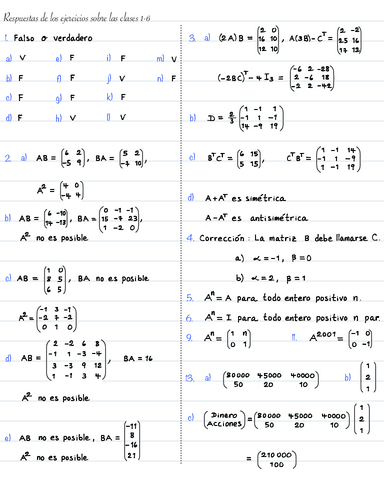 Respuestas de los ejercicios sobre las clases 1-6
1. Falso o verdadero
a) V e) F i) F m) V
b) F f) F j) V n) F
c) F g) F k) F
d) F h) V l) V
2. a) AB = (6 2; -5 9), BA = (5 2; -7 10),
A² = (4 0; -4 4)
b) AB = (6 -10; 14 -13), BA = (0 -1 -1; 15 -7 23; 1 -2 0),
A² no es posible
c) AB = (1 0; 8 5; 6 5), BA no es posible
A² = (-1 3 -1; -2 7 -2; 0 1 0)
d) AB = (2 -2 6 8; -1 1 -3 -4; 3 -3 9 12; 1 -1 3 4), BA = 16
A² no es posible
e) AB no es posible, BA = (-11; 8; -16; 21)
A² no es posible
3. a) (2A)B = (2 0; 16 10; 12 10), A(3B)-Cᵀ = (2 -2; 25 16; 17 13)
(-2BC)ᵀ - 4I₃ = (-6 2 -28; -2 -6 18; -2 2 -42)
b) D = 2/3 (1 -1 1; -1 1 -1; 14 -9 19)
c) BᵀCᵀ = (6 15; 5 15), CᵀBᵀ = (-1 1 14; -1 1 9; -1 1 19)
d) A+Aᵀ es simétrica
A-Aᵀ es antisimétrica
4. Corrección: La matriz B debe llamarse C.
a) α = -1, β = 0
b) α = 2, β = 1
5. Aⁿ = A para todo entero positivo n.
6. Aⁿ = I para todo entero positivo n par.
9. Aⁿ = (1 n; 0 1) 11. A²⁰⁰¹ = (-1 0; 0 -1)
13. a) (80000 45000 40000; 50 20 10) b) (1; 2; 1)
c) (Dinero; Acciones) = (80000 45000 40000; 50 20 10) (1; 2; 1)
= (210000; 100)